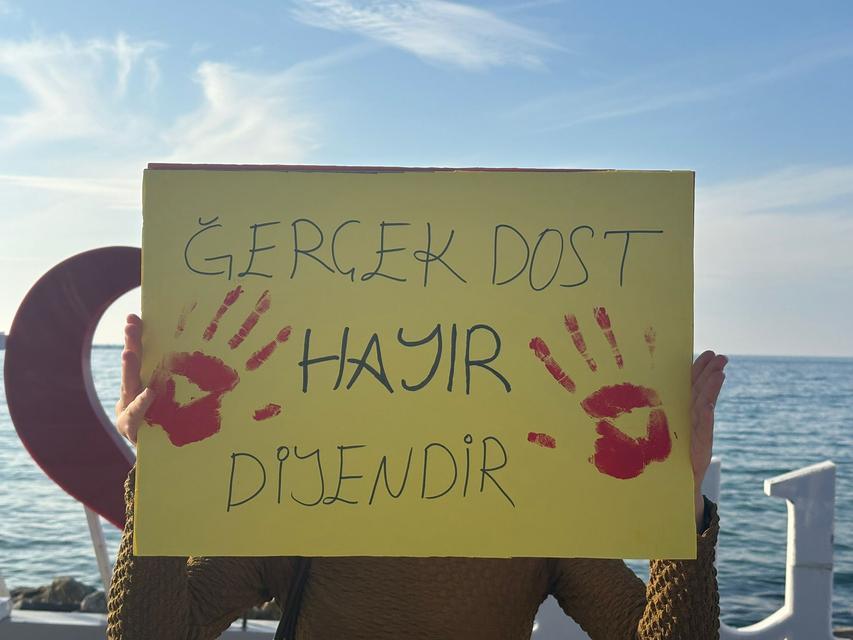 ĞERCEK DOST
HAYIR
DİYENDİR